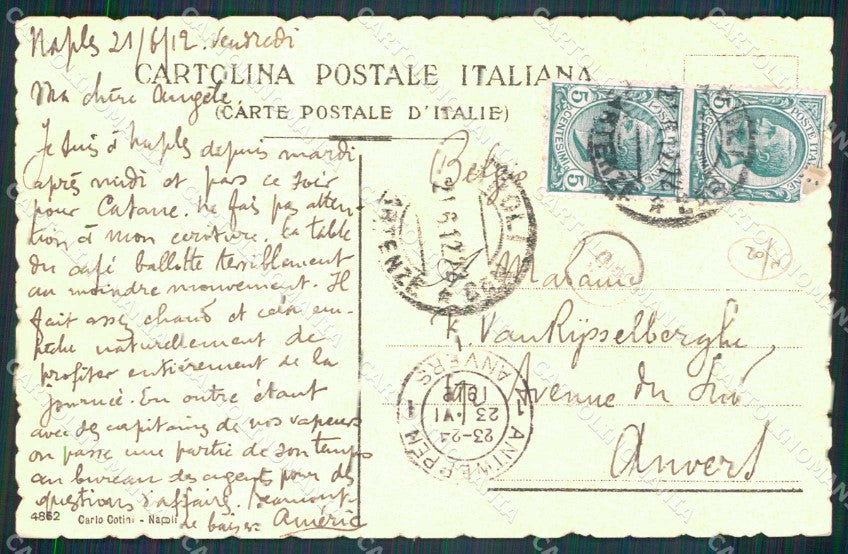 Naples 21/6/12. Vendredi
CARTOLINA POSTALE ITALIANA
(CARTE POSTALE D'ITALIE)
Ma chère Angèle,
Je suis à Naples depuis mardi
après midi et pars ce soir
pour Catane. Ne fais pas atten-
tion à mon ecriture. La table
du café ballotte terriblement
au moindre mouvement. Il
fait assez chaud et cela em-
pêche naturellement de
profiter entièrement de la
journée. En outre étant
avec des capitaines de nos vapeurs
on passe une partie de son temps
au bureau des agents pour des
questions d'affaire.
de baisers Améric
4862 Carlo Cotini - Napoli
Belge
Madame
K. Van Rijsselberghe,
Avenue du Sud
Anvers
5 CENTESIMI 5
POSTE ITALIANE
5 CENTESIMI 5
POSTE ITALIANE
21.6.12
ANTWERPEN
23-24
23.VI
1912
ANVERS
1
CARTOLINOMANIA